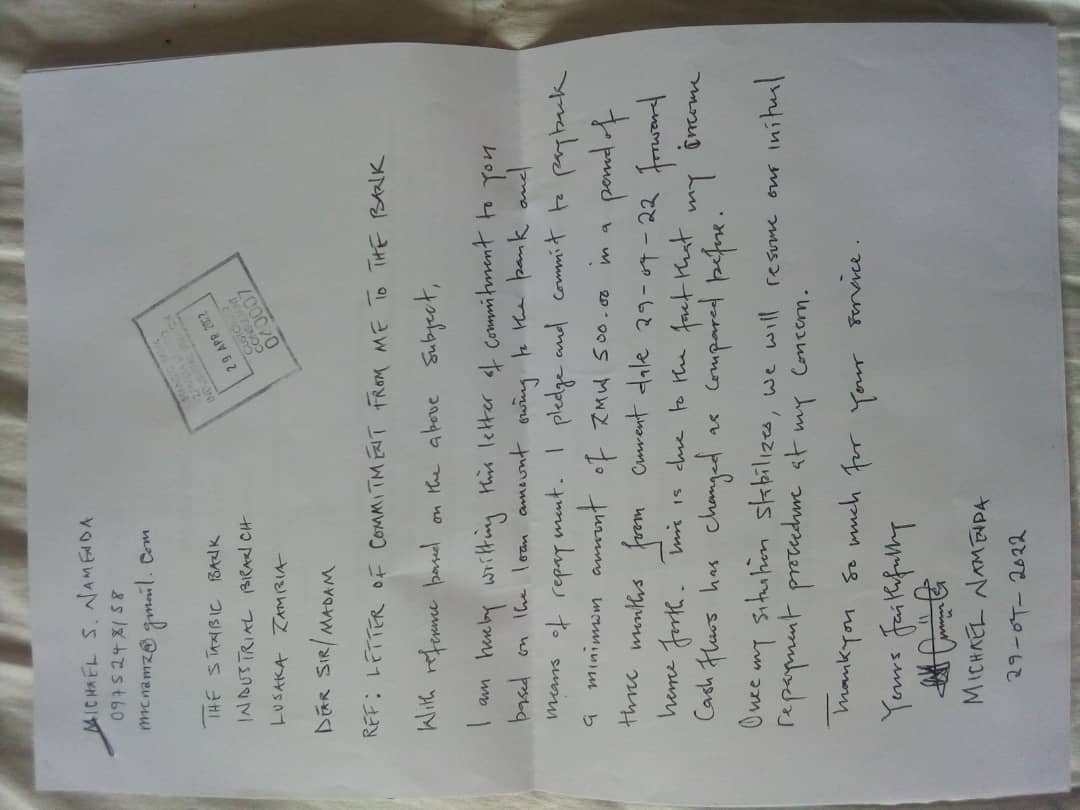 MICHAEL S. NAMENDA
micnamz@gmail.com
THE STANBIC BANK
INDUSTRIAL BRANCH
LUSAKA ZAMBIA
DEAR SIR/MADAM
29 APR 2022
REF: LETTER OF COMMITMENT FROM ME TO THE BANK
With reference based on the above subject,
I am hereby writting this letter of commitment to you
based on the loan amount owing to the bank and
means of repayment. I pledge and commit to payback
a minimum amount of ZMW 500.00 in a period of
three months from current date 29-04-22 forward
hence forth. This is due to the fact that my income
Cash flows has changed as compared before.
Once my situation stabilizes, we will resume our initial
repayment procedure at my concern.
Thank you so much for your service.
Yours faithfully
MICHAEL NAMENDA
29-04-2022